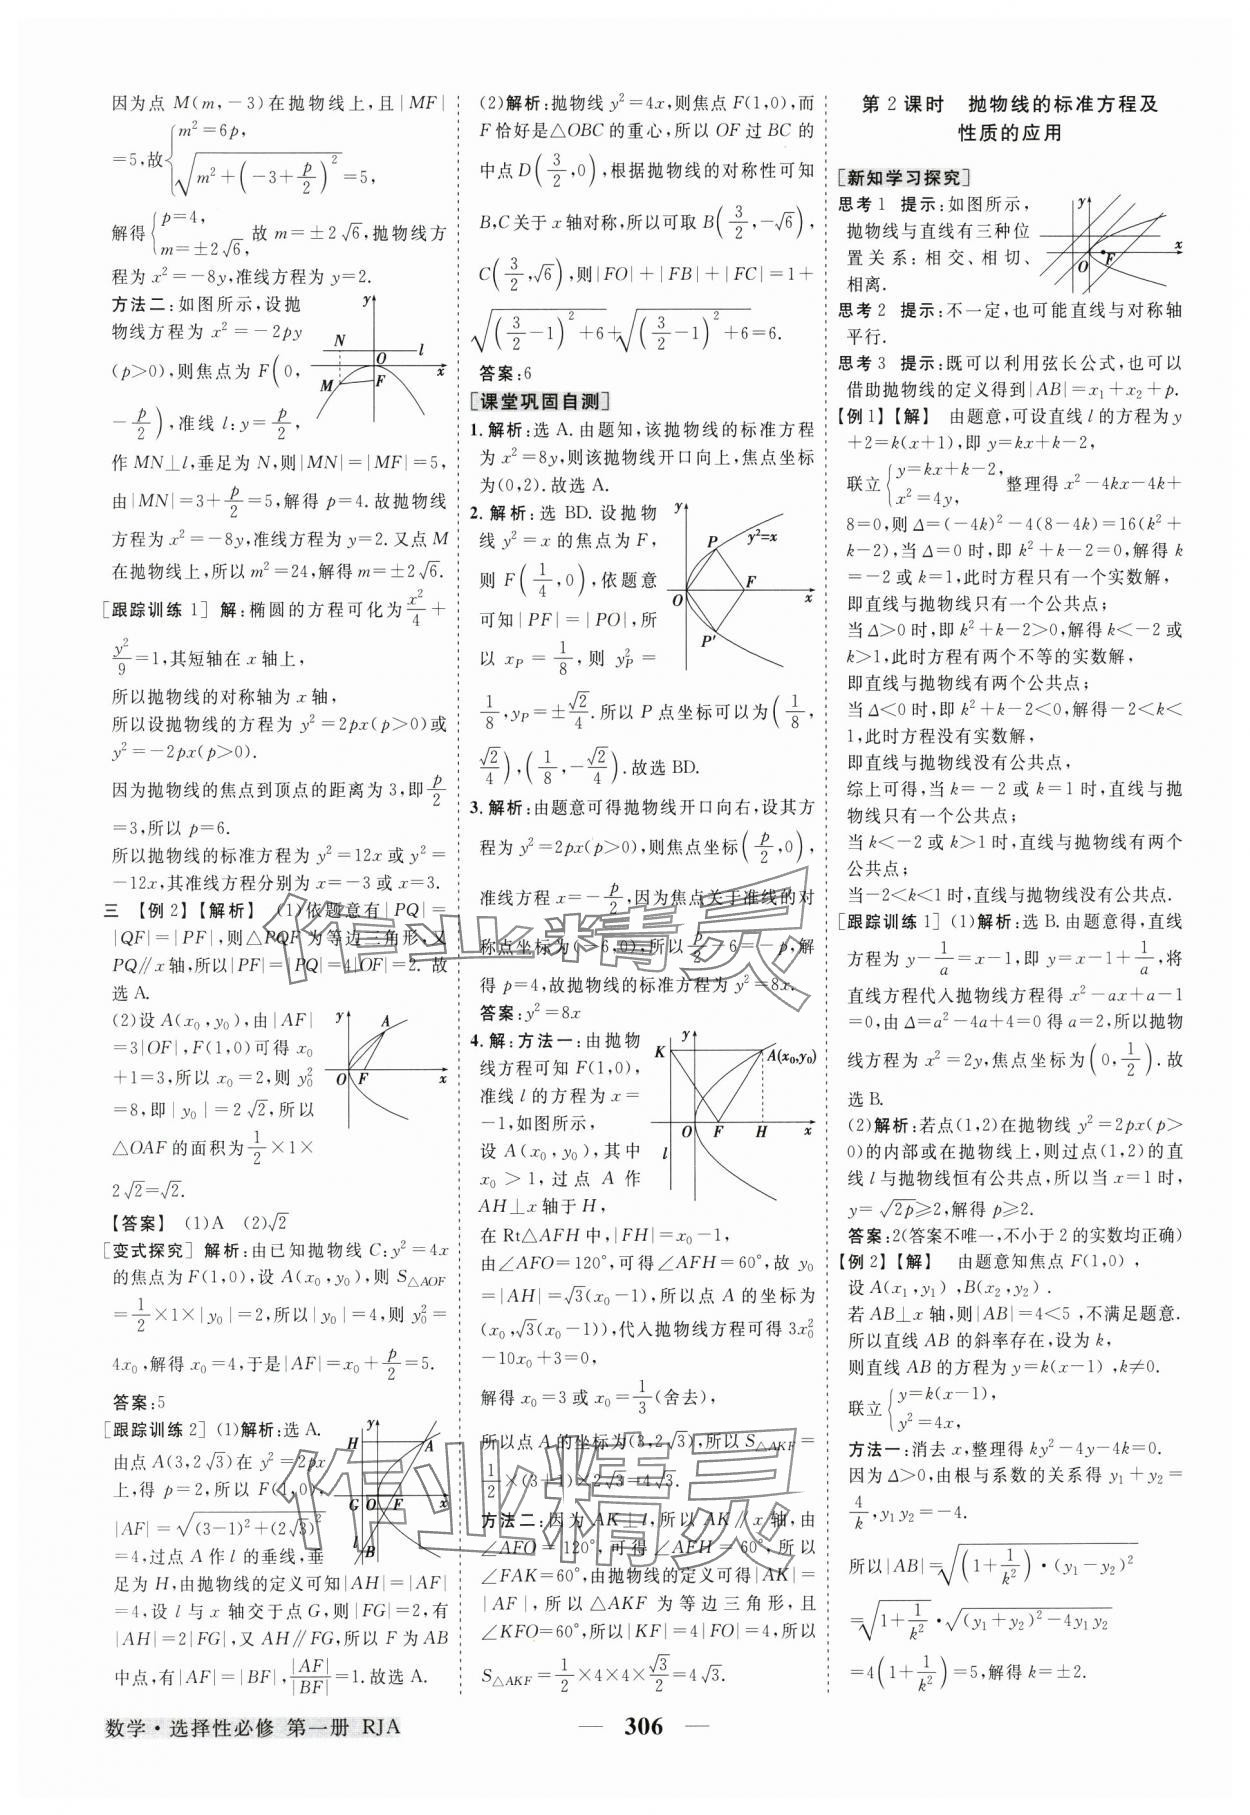 因为点 M(m,-3)在抛物线上,且|MF|
=5,故{m²=6p, √(m²+(-3+p/2)²)=5,
解得{p=4, m=±2√6, 故 m=±2√6,抛物线方
程为 x²=-8y,准线方程为 y=2.
方法二:如图所示,设抛
物线方程为 x²=-2py
(p>0),则焦点为 F(0,
-p/2),准线 l:y=p/2,
作 MN⊥l,垂足为 N,则|MN|=|MF|=5,
由|MN|=3+p/2=5,解得 p=4.故抛物线
方程为 x²=-8y,准线方程为 y=2.又点 M
在抛物线上,所以 m²=24,解得 m=±2√6.
[跟踪训练 1] 解:椭圆的方程可化为x²/4+
y²/9=1,其短轴在 x 轴上,
所以抛物线的对称轴为 x 轴,
所以设抛物线的方程为 y²=2px(p>0)或
y²=-2px(p>0).
因为抛物线的焦点到顶点的距离为 3,即p/2
=3,所以 p=6.
所以抛物线的标准方程为 y²=12x 或 y²=
-12x,其准线方程分别为 x=-3 或 x=3.
三 【例 2】【解析】 (1)依题意有|PQ|=
|QF|=|PF|,则△PQF 为等边三角形,又
PQ∥x 轴,所以|PF|=|PQ|=4|OF|=2.故
选 A.
(2)设 A(x₀,y₀),由|AF|
=3|OF|,F(1,0)可得 x₀
+1=3,所以 x₀=2,则 y₀²
=8,即|y₀|=2√2,所以
△OAF 的面积为1/2×1×
2√2=√2.
【答案】 (1)A (2)√2
[变式探究] 解析:由已知抛物线 C:y²=4x
的焦点为 F(1,0),设 A(x₀,y₀),则 S△AOF
=1/2×1×|y₀|=2,所以|y₀|=4,则 y₀²=
4x₀,解得 x₀=4,于是|AF|=x₀+p/2=5.
答案:5
[跟踪训练 2] (1)解析:选 A.
由点 A(3,2√3)在 y²=2px
上,得 p=2,所以 F(1,0),
|AF|=√((3-1)²+(2√3)²)
=4,过点 A 作 l 的垂线,垂
足为 H,由抛物线的定义可知|AH|=|AF|
=4,设 l 与 x 轴交于点 G,则|FG|=2,有
|AH|=2|FG|,又 AH∥FG,所以 F 为 AB
中点,有|AF|=|BF|,|AF|/|BF|=1.故选 A.
(2)解析:抛物线 y²=4x,则焦点 F(1,0),而
F 恰好是△OBC 的重心,所以 OF 过 BC 的
中点 D(3/2,0),根据抛物线的对称性可知
B,C 关于 x 轴对称,所以可取 B(3/2,-√6),
C(3/2,√6),则|FO|+|FB|+|FC|=1+
√((3/2-1)²+6)+√((3/2-1)²+6)=6.
答案:6
[课堂巩固自测]
1.解析:选 A.由题知,该抛物线的标准方程
为 x²=8y,则该抛物线开口向上,焦点坐标
为(0,2).故选 A.
2.解析:选 BD.设抛物
线 y²=x 的焦点为 F,
则 F(1/4,0),依题意
可知|PF|=|PO|,所
以 xP=1/8,则 yP²=
1/8,yP=±√2/4.所以 P 点坐标可以为(1/8,
√2/4),(1/8,-√2/4).故选 BD.
3.解析:由题意可得抛物线开口向右,设其方
程为 y²=2px(p>0),则焦点坐标(p/2,0),
准线方程 x=-p/2,因为焦点关于准线的对
称点坐标为(-6,0),所以p/2-6=-p,解
得 p=4,故抛物线的标准方程为 y²=8x.
答案:y²=8x
4.解:方法一:由抛物
线方程可知 F(1,0),
准线 l 的方程为 x=
-1,如图所示,
设 A(x₀,y₀),其中
x₀>1,过点 A 作
AH⊥x 轴于 H,
在 Rt△AFH 中,|FH|=x₀-1,
由∠AFO=120°,可得∠AFH=60°,故 y₀
=|AH|=√3(x₀-1),所以点 A 的坐标为
(x₀,√3(x₀-1)),代入抛物线方程可得 3x₀²
-10x₀+3=0,
解得 x₀=3 或 x₀=1/3(舍去),
所以点 A 的坐标为(3,2√3),所以 S△AKF=
1/2×(3+1)×2√3=4√3.
方法二:因为 AK⊥l,所以 AK∥x 轴,由
∠AFO=120°,可得∠AFH=60°,所以
∠FAK=60°,由抛物线的定义可得|AK|=
|AF|,所以△AKF 为等边三角形,且
∠KFO=60°,所以|KF|=4|FO|=4,所以
S△AKF=1/2×4×4×√3/2=4√3.
第 2 课时 抛物线的标准方程及
性质的应用
[新知学习探究]
思考 1 提示:如图所示,
抛物线与直线有三种位
置关系:相交、相切、
相离.
思考 2 提示:不一定,也可能直线与对称轴
平行.
思考 3 提示:既可以利用弦长公式,也可以
借助抛物线的定义得到|AB|=x₁+x₂+p.
【例 1】【解】 由题意,可设直线 l 的方程为 y
+2=k(x+1),即 y=kx+k-2,
联立{y=kx+k-2, x²=4y, 整理得 x²-4kx-4k+
8=0,则 Δ=(-4k)²-4(8-4k)=16(k²+
k-2),当 Δ=0 时,即 k²+k-2=0,解得 k
=-2 或 k=1,此时方程只有一个实数解,
即直线与抛物线只有一个公共点;
当 Δ>0 时,即 k²+k-2>0,解得 k<-2 或
k>1,此时方程有两个不等的实数解,
即直线与抛物线有两个公共点;
当 Δ<0 时,即 k²+k-2<0,解得-2<k<
1,此时方程没有实数解,
即直线与抛物线没有公共点,
综上可得,当 k=-2 或 k=1 时,直线与抛
物线只有一个公共点;
当 k<-2 或 k>1 时,直线与抛物线有两个
公共点;
当-2<k<1 时,直线与抛物线没有公共点.
[跟踪训练 1] (1)解析:选 B.由题意得,直线
方程为 y-1/a=x-1,即 y=x-1+1/a,将
直线方程代入抛物线方程得 x²-ax+a-1
=0,由 Δ=a²-4a+4=0 得 a=2,所以抛物
线方程为 x²=2y,焦点坐标为(0,1/2).故
选 B.
(2)解析:若点(1,2)在抛物线 y²=2px(p>
0)的内部或在抛物线上,则过点(1,2)的直
线 l 与抛物线恒有公共点,所以当 x=1 时,
y=√2p≥2,解得 p≥2.
答案:2(答案不唯一,不小于 2 的实数均正确)
【例 2】【解】 由题意知焦点 F(1,0),
设 A(x₁,y₁),B(x₂,y₂).
若 AB⊥x 轴,则|AB|=4<5,不满足题意.
所以直线 AB 的斜率存在,设为 k,
则直线 AB 的方程为 y=k(x-1),k≠0.
联立{y=k(x-1), y²=4x,
方法一:消去 x,整理得 ky²-4y-4k=0.
因为 Δ>0,由根与系数的关系得 y₁+y₂=
4/k,y₁y₂=-4.
所以|AB|=√((1+1/k²)·(y₁-y₂)²)
=√(1+1/k²)·√((y₁+y₂)²-4y₁y₂)
=4(1+1/k²)=5,解得 k=±2.
数学·选择性必修 第一册 RJA
— 306 —
作业精灵
作业精灵